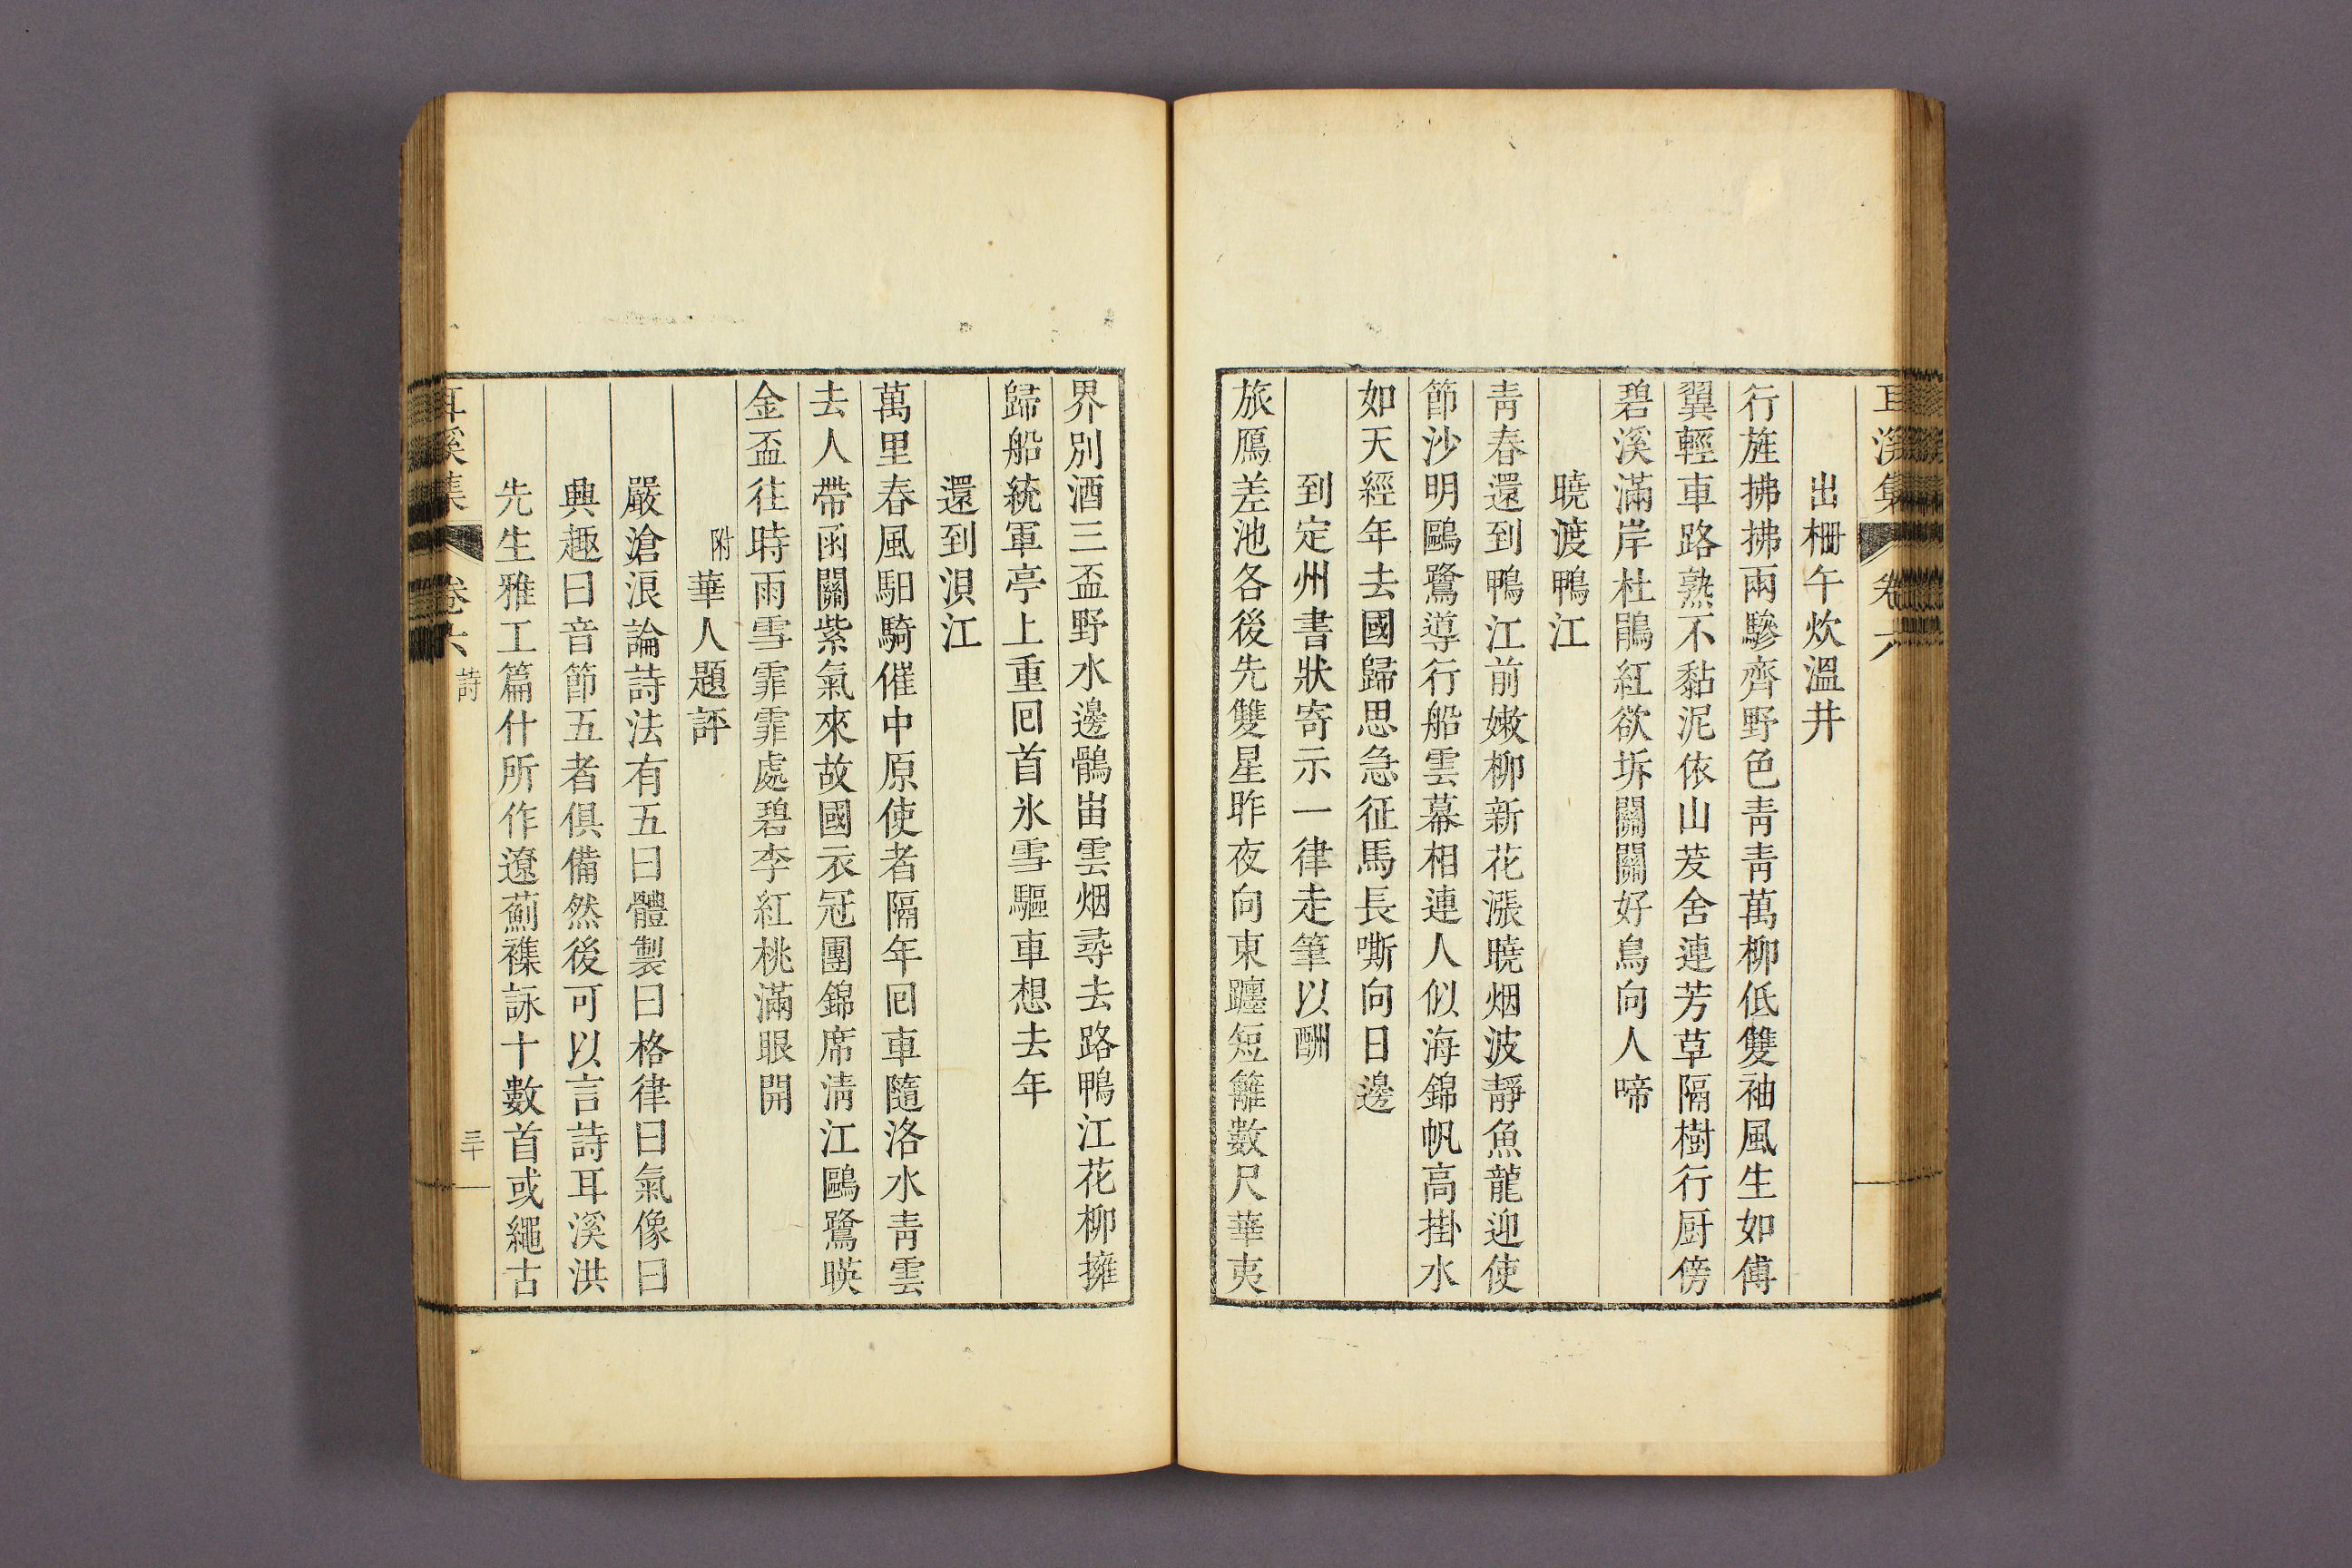 耳溪集 卷六
出柵午炊溫井
行旌拂拂兩驂齊野色靑靑萬柳低雙袖風生如傅
翼輕車路熟不黏泥依山茇舍連芳草隔樹行厨傍
碧溪滿岸杜鵑紅欲坼關關好鳥向人啼
曉渡鴨江
靑春還到鴨江前嫩柳新花漲曉烟波靜魚龍迎使
節沙明鷗鷺導行船雲幕相連人似海錦帆高掛水
如天經年去國歸思急征馬長嘶向日邊
到定州書狀寄示一律走筆以酬
旅鴈差池各後先雙星昨夜向東躔短籬數尺華夷
界別酒三盃野水邊鶻峀雲烟尋去路鴨江花柳擁
歸船統軍亭上重回首氷雪驅車想去年
還到浿江
萬里春風馹騎催中原使者隔年回車隨洛水靑雲
去人帶函關紫氣來故國衣冠團錦席淸江鷗鷺暎
金盃徃時雨雪霏霏處碧李紅桃滿眼開
附華人題評
嚴滄浪論詩法有五曰體製曰格律曰氣像曰
興趣曰音節五者俱備然後可以言詩耳溪洪
先生雅工篇什所作遼薊襍詠十數首或繩古
耳溪集 卷六 詩 三十